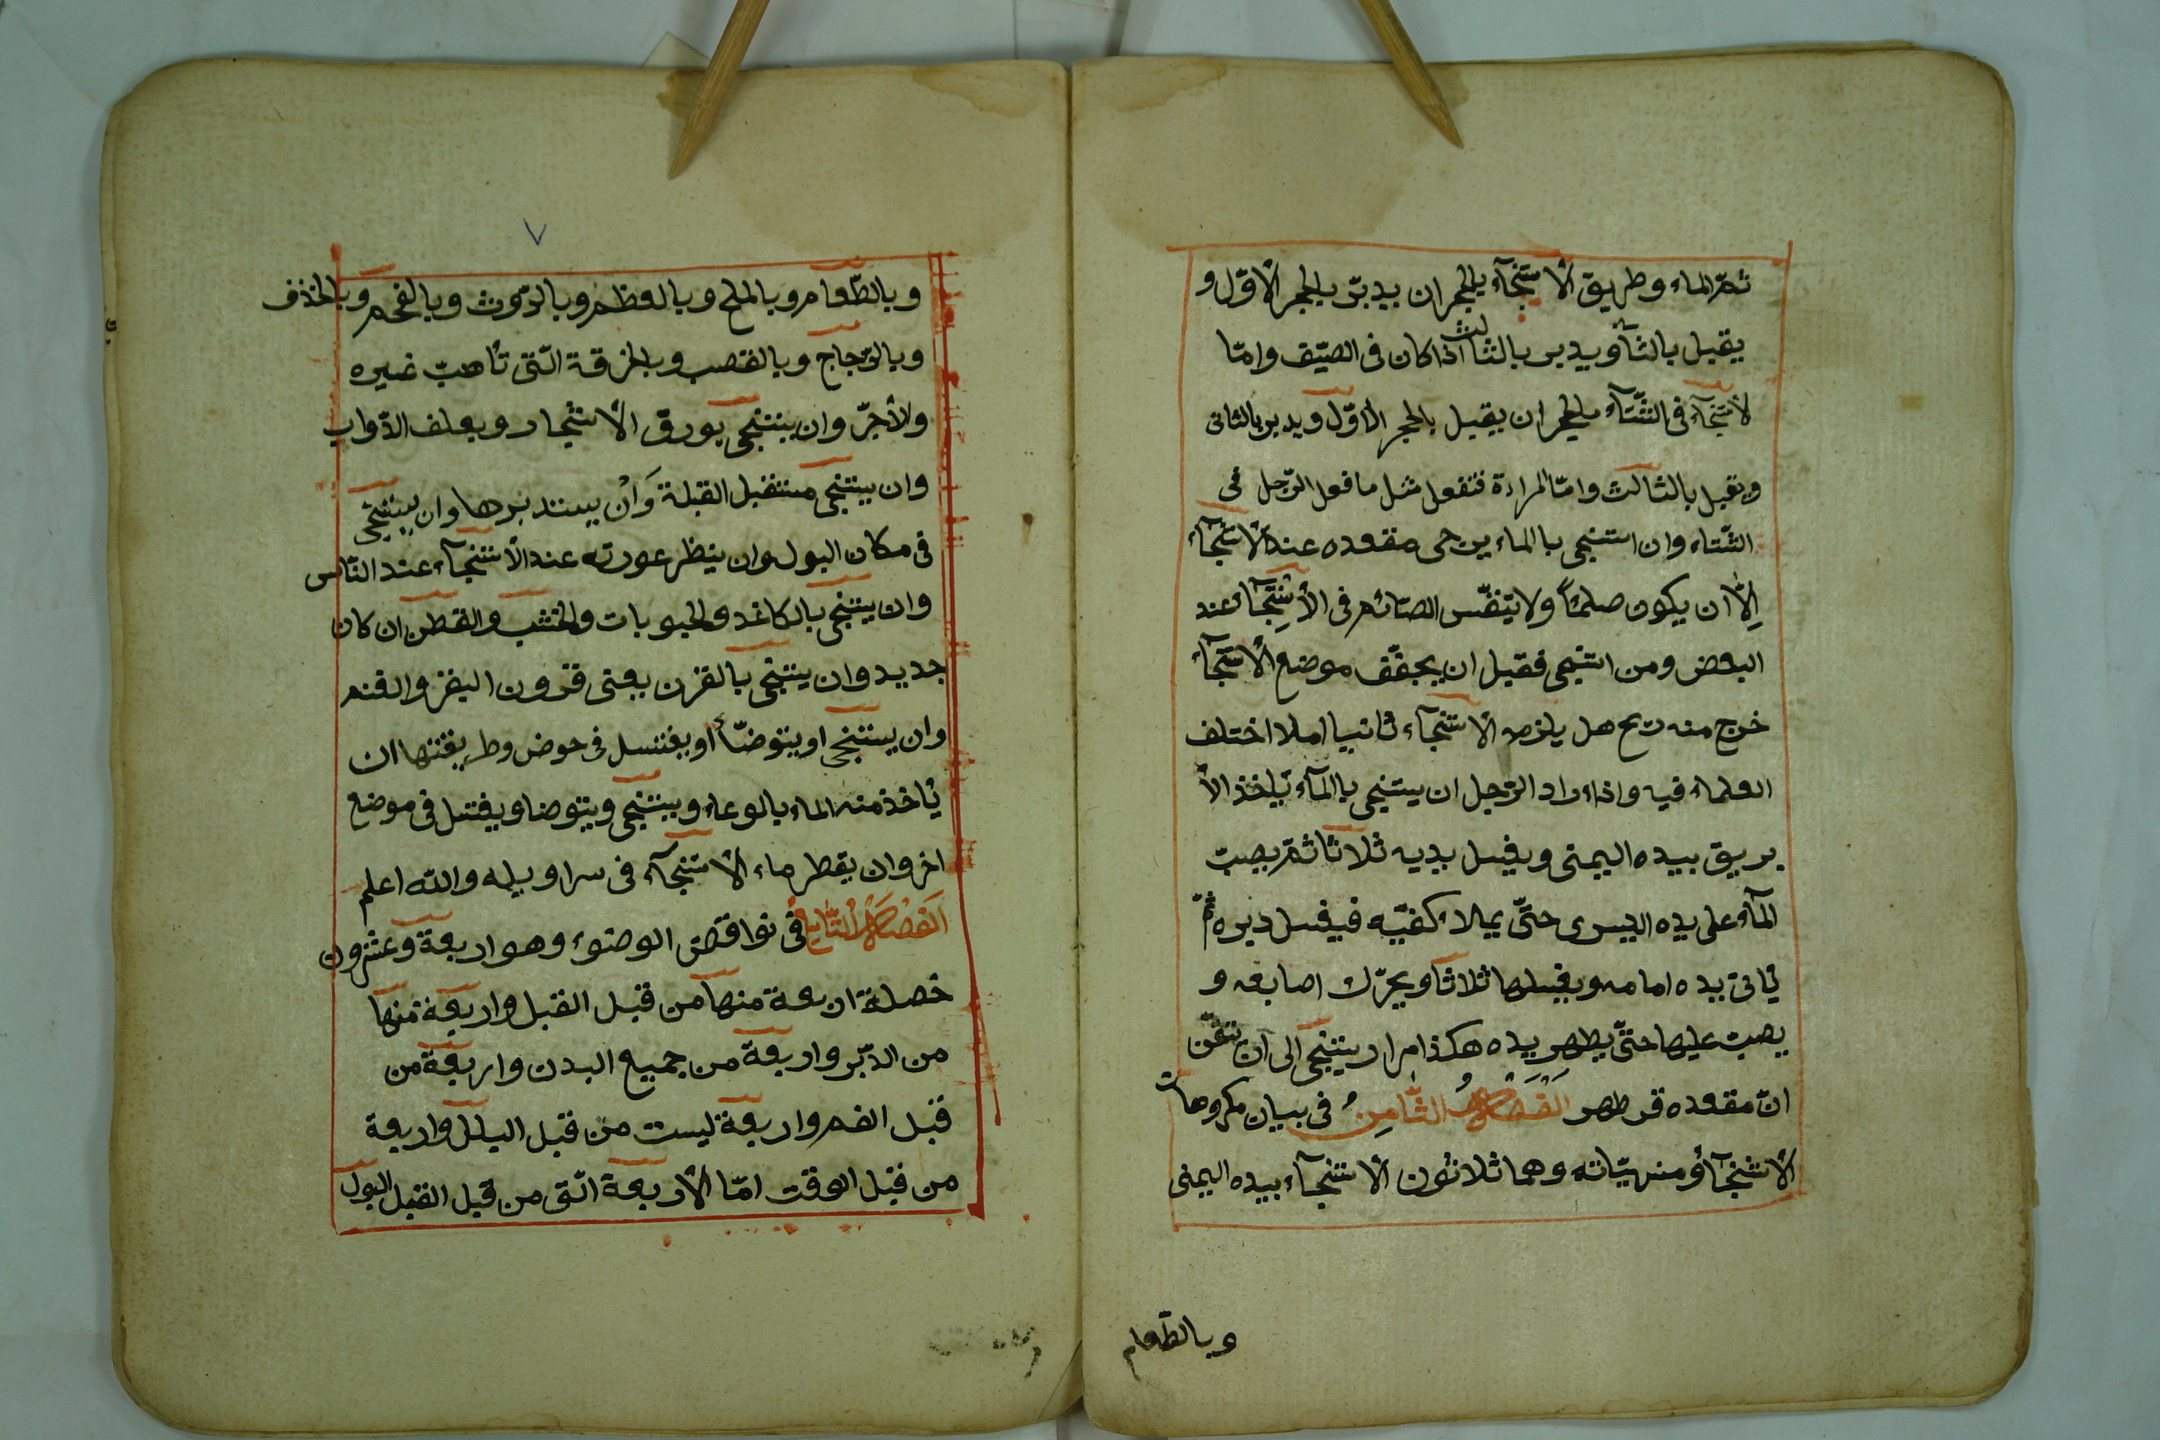 ثمّ الماء وطريق الاستنجآء بالحجر ان يدبّر بالحجر الاوّل و
يقبل بالثا ويدبر بالثالث اذا كان فى الصّيف وامّا
لاستنجآء فى الشّتآء بالحجر ان يقبل بالحجر الاوّل ويدبر بالثانى
ويقبل بالثالث وامّا المراءة فتفعل مثل ما فعل الرّجل فى
الشّتاء وان استنجى بالماء يرخى مقعده عند الاستنجآء
اِلّا ان يكون صائماً ولا يتنفّس الصّائم فى الاستنجآء عند
البعض ومن استنجى فقبل ان يجفّف موضع الاستنجآء
خرج منه ريح هل يلزمه الاستنجآء ثانيا ام لا اختلف
العلماء فيه واذا اراد الرّجل ان يستنجى بالمآء يأخذ الا
بريق بيده اليمنى ويغسل يديه ثلاثا ثمّ يصبّ
المآء على يده اليسرى حتّى يملاء كفّيه فيغسل دبره ثمّ
يأتى بيده امامه ويغسلها ثلاثا ويحرّك اصابعه و
يصبّ عليها حتّى يطهر يده هكذا مرار يستنجى الى ان يتقّن
انّ مقعده قد طهر الفصل الثّامن فى بيان مكروهات
الاستنجآء ومنهيّاته وهما ثلاثون الاستنجآء بيده اليمنى
وبالطّعام
٧
وبالطّعام وبالملح وبالعظم وبالرّوث وبالفحم وبالخذف
وبالزّجاج وبالقصب وبالخرقة الّتى تأهبّ غيره
ولاأجرّ وان يستنجى بورق الاشجار وبعلف الدّواب
وان يستنجى مستقبل القبلة وَانْ يستدبرها وان يستنجى
فى مكان البول وان ينظر عورته عند الاستنجآء عند النّاس
وان يستنجى بالكاغد والحبوبات والخشب والقطن ان كان
جديد وان يستنجى بالقرن يعنى قرون البقر والغنم
وان يستنجى او يتوضّأ او يغتسل فى حوض وطريقتها ان
يأخذ منه الماء بالوعاء ويستنجى ويتوضا ويغتسل فى موضع
اخر وان يقطر ماء الاستنجآء فى سراويله والله اعلم
الفصل التّاسع فى نواقض الوضوء وهو اربعة وعشرون
خصلة اربعة منها من قبل القبل واربعة منها
من الدّبر واربعة من جميع البدن واربعة من
قبل الفم واربعة ليست من قبل البلل واربعة
من قبل الوقت امّا الاربعة الّتى من قبل القبل البول